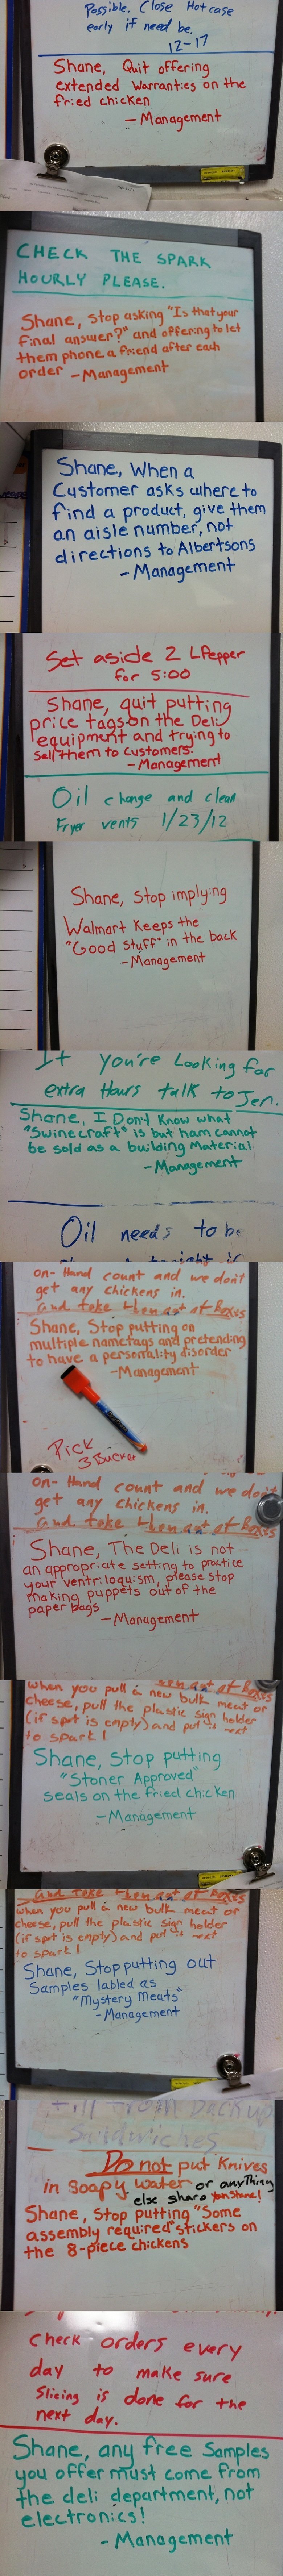 Possible. Close Hotcase
early if need be.
12-17
Shane, Quit offering
extended warranties on the
fried chicken
- Management
CHECK THE SPARK
HOURLY PLEASE.
Shane, Stop asking "Is that your
final answer?" and offering to let
them phone a friend after each
order - Management
Shane, When a
Customer asks where to
find a product, give them
an aisle number, not
directions to Albertsons
- Management
Set aside 2 LPepper
for 5:00
Shane, quit putting
price tags on the Deli
equipment and trying to
sell them to customers.
- Management
Oil change and clean
Fryer vents 1/23/12
Shane, Stop implying
Walmart Keeps the
"Good Stuff" in the back
- Management
If you're Looking for
extra Hours talk to Jen.
Shane, I Don't Know what
"Swinecraft" is but ham cannot
be sold as a building Material
- Management
Oil needs to be
on-Hand count and we don't
get any chickens in.
and take them out of Boxes
Shane, Stop putting on
multiple nametags and pretending
to have a personality disorder
- Management
Pick
3 Bucket
on-Hand count and we don't
get any chickens in.
and take them out of Boxes
Shane, The Deli is not
an appropriate setting to practice
your ventriloquism, please stop
making puppets out of the
paper bags
- Management
When you pull a new bulk meat or
cheese, pull the plastic sign holder
(if spot is empty) and put it next
to spark!
Shane, Stop putting
"Stoner Approved"
seals on the fried chicken
- Management
and take them out of Boxes
When you pull a new bulk meat or
cheese, pull the plastic sign holder
(if spot is empty) and put it next
to spark!
Shane, Stop putting out
Samples labled as
"Mystery Meats"
- Management
from backup
Sandwiches
Do not put Knives
in Soapy water or anything
else sharp
Shane, Stop putting "Some
assembly required" stickers on
the 8-piece chickens
Check orders every
day to make sure
Slicing is done for the
next day.
Shane, any free Samples
you offer must come from
the deli department, not
electronics!
- Management